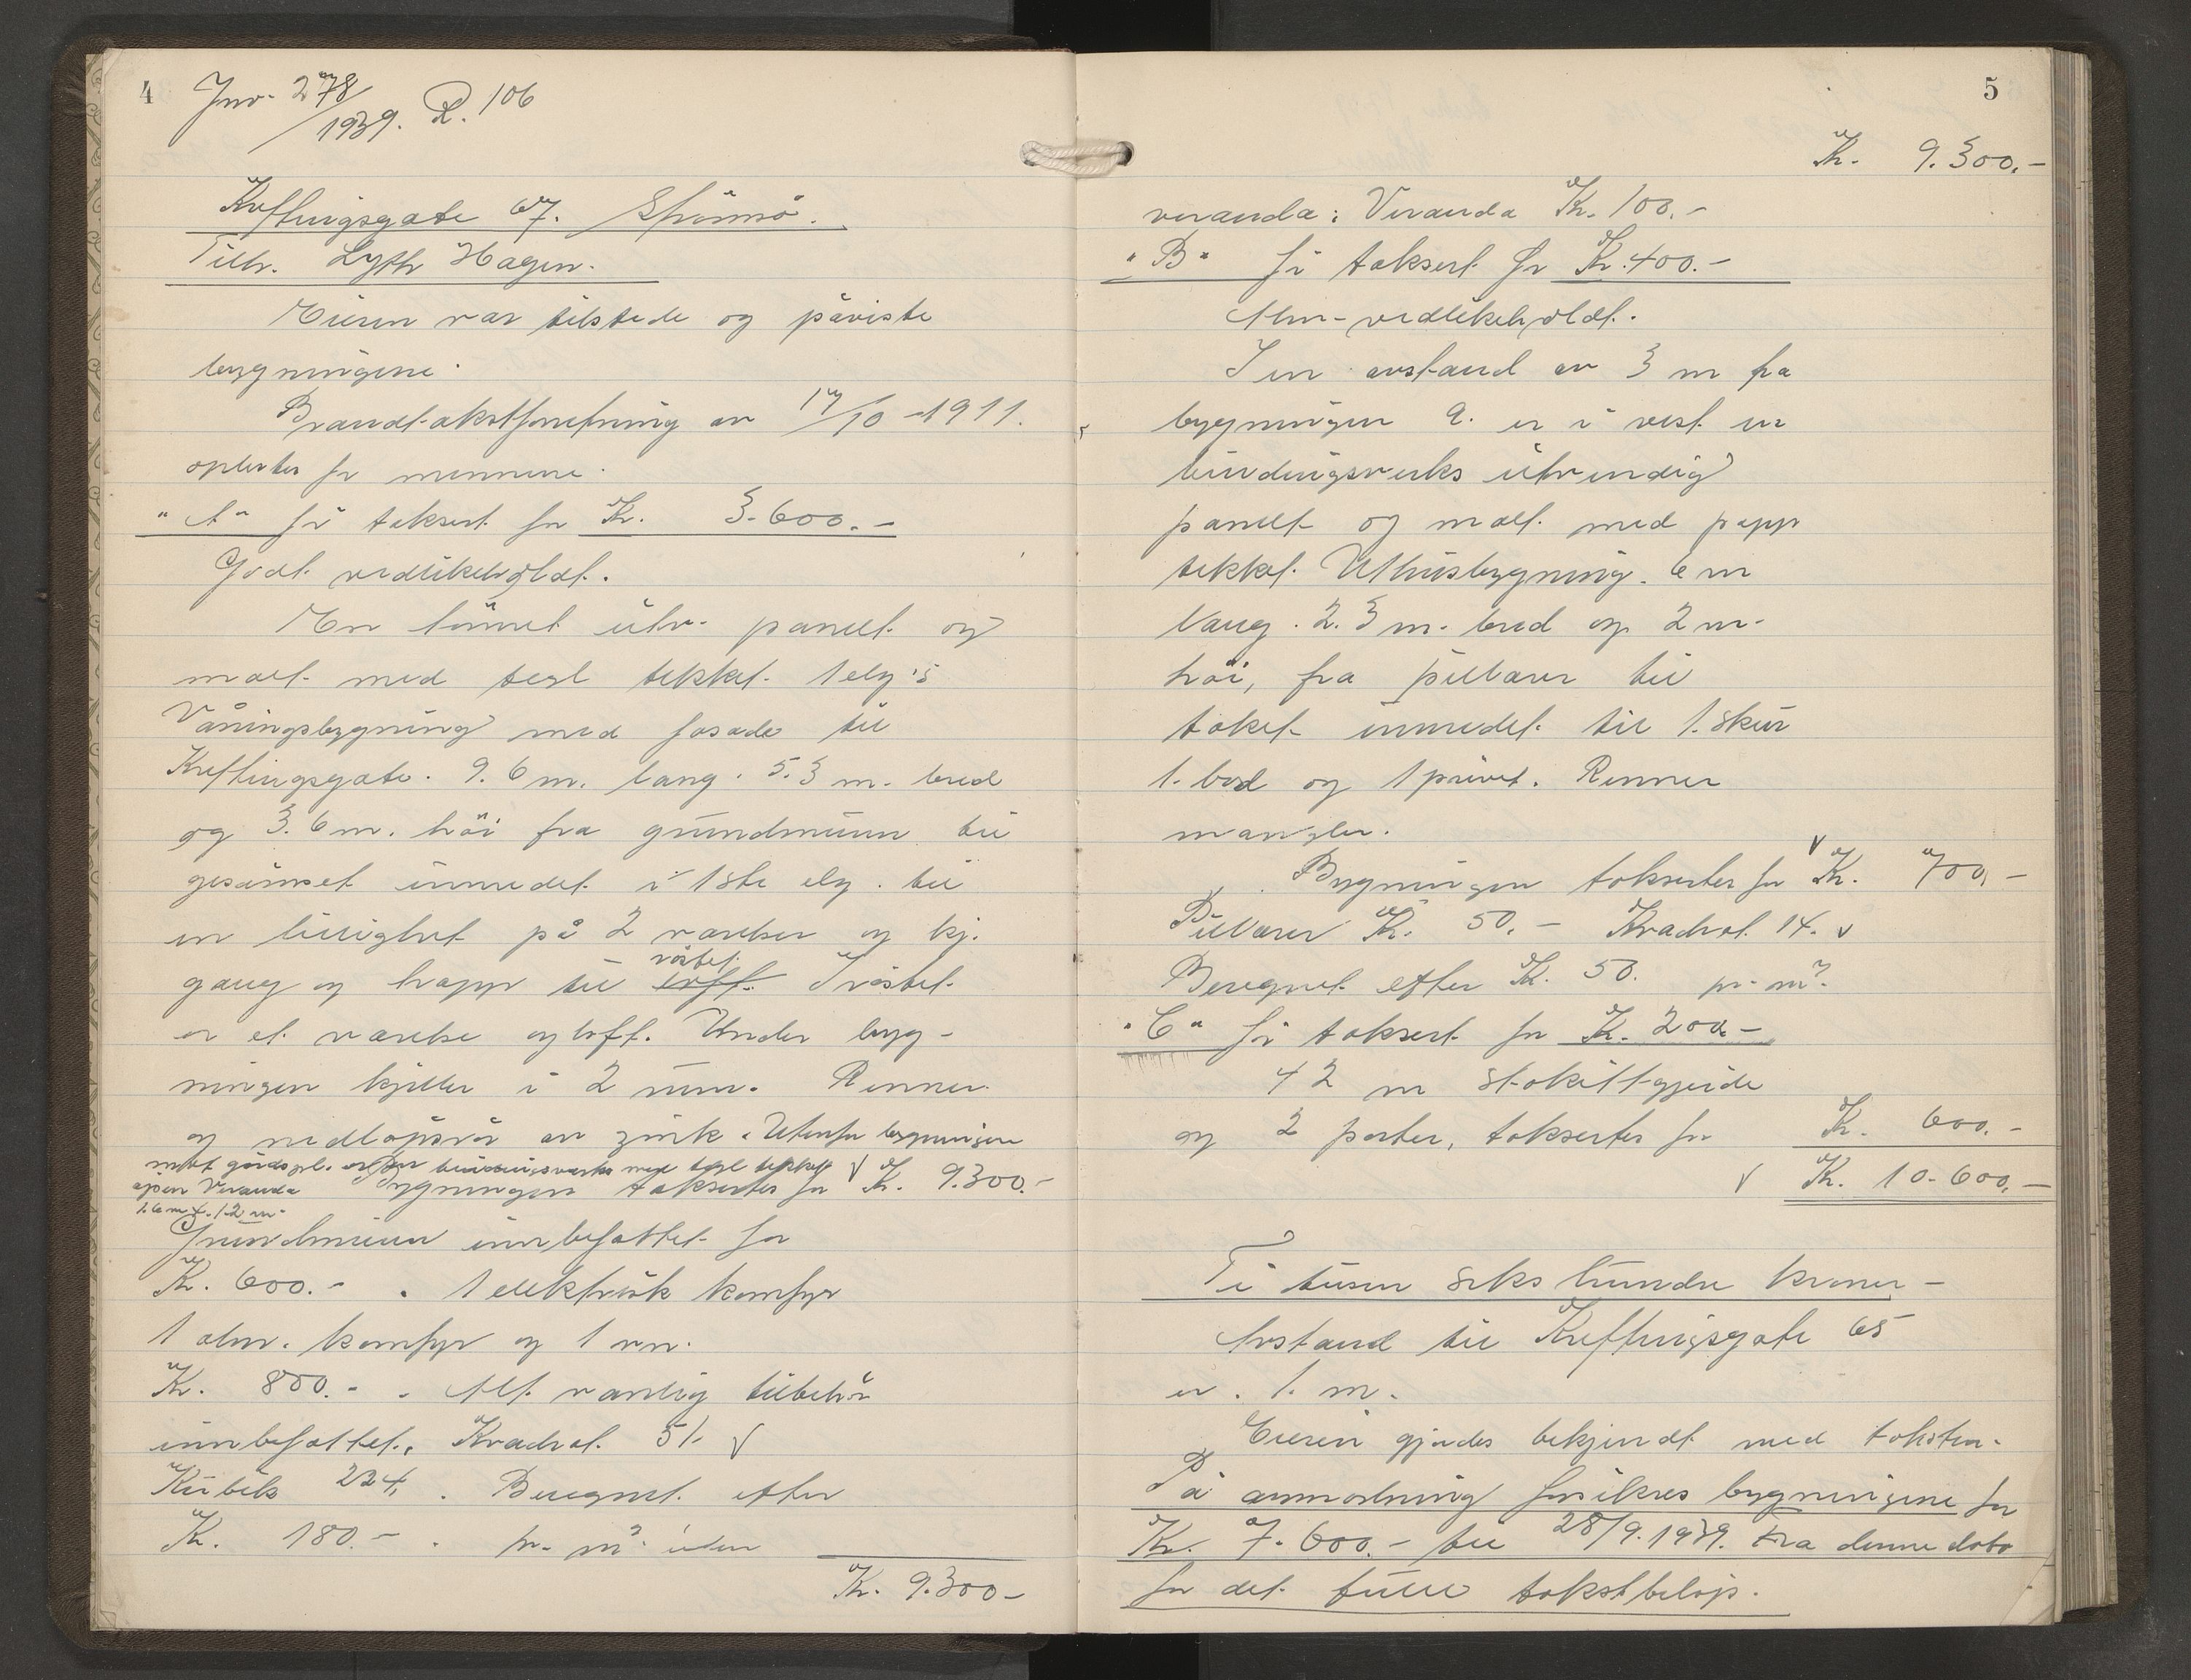 4 Jnr. 278/1939. R. 106
Kreftingsgate 67. Strømsø.
Tilh. Lyth Hagen.
Eieren var tilstede og påviste
bygningene.
Brandtakstforretning av 17/10-1911.
oplestes for mennene.
"A" før taksert for Kr. 3.600.-
Godt vedlikeholdt.
En tømret utv. panelt og
malt med tegl tekket 1 etg's
Våningsbygning med fasade til
Kreftingsgate. 9.6 m. lang. 5.3 m. bred
og 3.6 m. høi fra grundmuren til
gesimset innredet i 1ste etg. til
en leilighet på 2 værelser og kj.
gang og trapp til loft. røstet. I røstet
er et værelse og loft. Under byg-
ningen kjeller i 2 rum. Renner
og nedløpsrør av zink. Utenfor bygningen
mot gårdspl. er en bindingsverks med tegl tekket
åpen Veranda
1.6 m x 1.2 m.
Bygningen taksertes for Kr. 9.300.-
Grundmuren innbefattet for
Kr. 600.- . 1 elektrisk komfyr
1 alm. komfyr og 1 ovn.
Kr. 800.- . Alt vanlig tilbehør
innbefattet. Kvadrat. 51. v
Kubik 224. . Beregnet efter
Kr. 180.- . pr. m² uten
Kr. 9.300-
5
Kr. 9.300.-
veranda: Veranda Kr. 100.-
"B" før taksert for Kr. 400.-
Alm. vedlikeholdt.
I en avstand av 3 m fra
bygningen a. er i vest en
bindingsverks utvendig
panelt og malt med papp
tekket Uthusbygning. 6 m
lang. 2.3 m. bred og 2 m.
høi, fra pillarer til
taket innredet til 1. skur
1. bod og 1 privet. Renner
mangler.
Bygningen taksertes for Kr. 700,-
Pillarer Kr. 50.- Kvadrat 14. v
Beregnet efter Kr. 50. pr. m².
"C" før taksert for Kr. 200.-
42 m stakittgjerde
og 2 porter, taksertes for Kr. 600.-
v Kr. 10.600,-
Ti tusen seks hundre kroner-
Avstand til Kreftingsgate 65
er . 1. m.
Eieren gjordes bekjendt med taksten.
På anmodning forsikres bygningene for
Kr. 7.600.- til 28/9.1939. Fra denne dato
for det fulle takstbeløp.